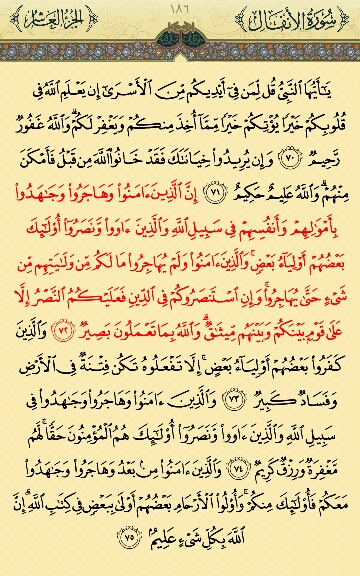 سُورَةُ الأَنْفَال ١٨٦ الجُزءُ العَاشِر
يَـٰٓأَيُّهَا ٱلنَّبِىُّ قُل لِّمَن فِىٓ أَيْدِيكُم مِّنَ ٱلْأَسْرَىٰٓ إِن يَعْلَمِ ٱللَّهُ فِى
قُلُوبِكُمْ خَيْرًا يُؤْتِكُمْ خَيْرًا مِّمَّآ أُخِذَ مِنكُمْ وَيَغْفِرْ لَكُمْ ۗ وَٱللَّهُ غَفُورٌ
رَّحِيمٌ ﴿٧٠﴾ وَإِن يُرِيدُوا۟ خِيَانَتَكَ فَقَدْ خَانُوا۟ ٱللَّهَ مِن قَبْلُ فَأَمْكَنَ
مِنْهُمْ ۗ وَٱللَّهُ عَلِيمٌ حَكِيمٌ ﴿٧١﴾ إِنَّ ٱلَّذِينَ ءَامَنُوا۟ وَهَاجَرُوا۟ وَجَـٰهَدُوا۟
بِأَمْوَٰلِهِمْ وَأَنفُسِهِمْ فِى سَبِيلِ ٱللَّهِ وَٱلَّذِينَ ءَاوَوا۟ وَّنَصَرُوٓا۟ أُو۟لَـٰٓئِكَ
بَعْضُهُمْ أَوْلِيَآءُ بَعْضٍ ۚ وَٱلَّذِينَ ءَامَنُوا۟ وَلَمْ يُهَاجِرُوا۟ مَا لَكُم مِّن وَلَـٰيَتِهِم مِّن
شَىْءٍ حَتَّىٰ يُهَاجِرُوا۟ ۚ وَإِنِ ٱسْتَنصَرُوكُمْ فِى ٱلدِّينِ فَعَلَيْكُمُ ٱلنَّصْرُ إِلَّا
عَلَىٰ قَوْمٍۭ بَيْنَكُمْ وَبَيْنَهُم مِّيثَـٰقٌ ۗ وَٱللَّهُ بِمَا تَعْمَلُونَ بَصِيرٌ ﴿٧٢﴾ وَٱلَّذِينَ
كَفَرُوا۟ بَعْضُهُمْ أَوْلِيَآءُ بَعْضٍ ۚ إِلَّا تَفْعَلُوهُ تَكُن فِتْنَةٌ فِى ٱلْأَرْضِ
وَفَسَادٌ كَبِيرٌ ﴿٧٣﴾ وَٱلَّذِينَ ءَامَنُوا۟ وَهَاجَرُوا۟ وَجَـٰهَدُوا۟ فِى
سَبِيلِ ٱللَّهِ وَٱلَّذِينَ ءَاوَوا۟ وَّنَصَرُوٓا۟ أُو۟لَـٰٓئِكَ هُمُ ٱلْمُؤْمِنُونَ حَقًّا ۚ لَّهُم
مَّغْفِرَةٌ وَرِزْقٌ كَرِيمٌ ﴿٧٤﴾ وَٱلَّذِينَ ءَامَنُوا۟ مِنۢ بَعْدُ وَهَاجَرُوا۟ وَجَـٰهَدُوا۟
مَعَكُمْ فَأُو۟لَـٰٓئِكَ مِنكُمْ ۚ وَأُو۟لُوا۟ ٱلْأَرْحَامِ بَعْضُهُمْ أَوْلَىٰ بِبَعْضٍ فِى كِتَـٰبِ ٱللَّهِ ۗ إِنَّ
ٱللَّهَ بِكُلِّ شَىْءٍ عَلِيمٌۢ ﴿٧٥﴾